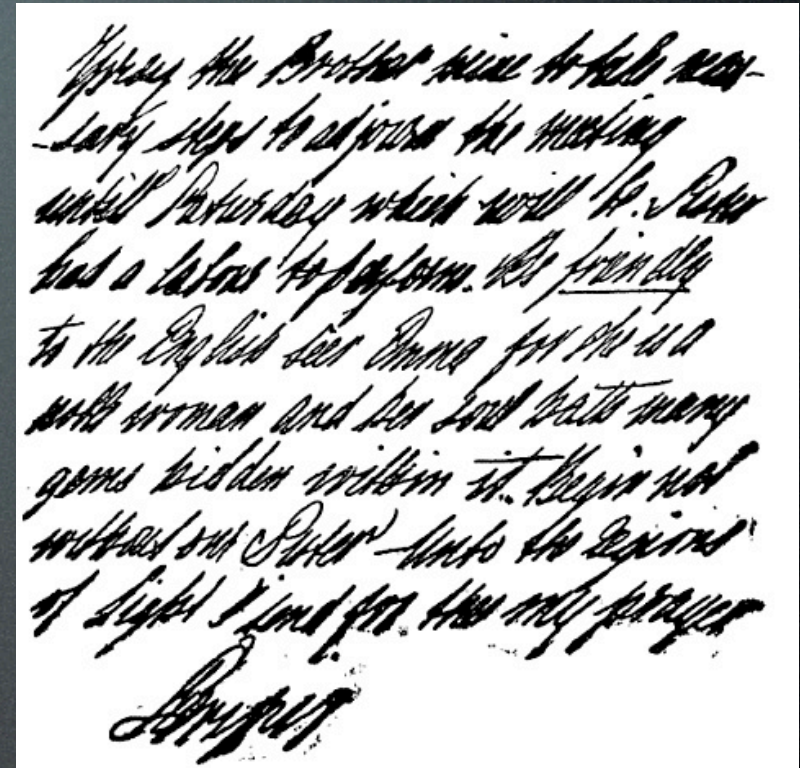 I pray thee Brother mine to take neces-
-sary steps to adjourn the meeting
untill Saturday which will be. Sister
has a labour to perform. Be friendly
to the English Seer Emma for she is a
noble woman and her soul hath many
gems hidden within it. Begin not
without our Sister - Unto the Regions
of Light I send for thee my prayer
Serapis